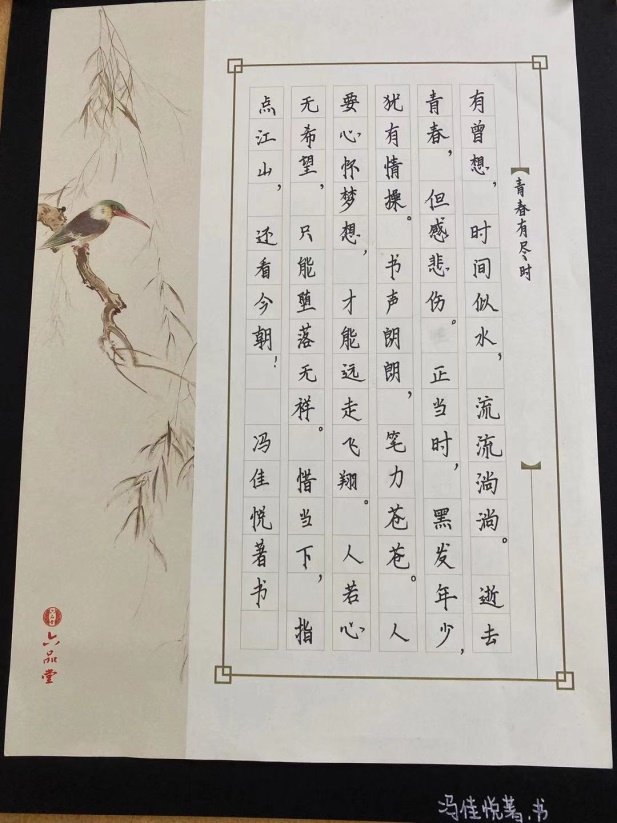 青春有尽时
有曾想，时间似水，流流淌淌。逝去
青春，但感悲伤。正当时，黑发年少，
犹有情操。书声朗朗，笔力苍苍。人
要心怀梦想，才能远走飞翔。人若心
无希望，只能堕落无祥。惜当下，指
点江山，还看今朝！冯佳悦著书
六品堂
冯佳悦著.书